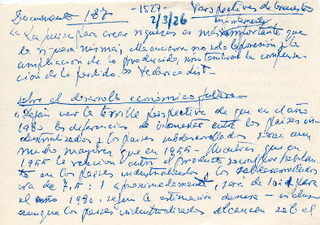 Documento 187 -1527-
2/3/26
Perspectivas de
"La fuerza para crear riquezas es más importante que
la riqueza misma; ella encierra no solo la posesión y la
ampliación de lo producido, sino también la compen-
sación de lo perdido." Federico List.
Sobre el desarrollo económico futuro
dejan ver la terrible perspectiva de que en el año
1980 las diferencias de entre los países in-
dustrializados y los países subdesarrollados sean aun
mucho mayores que en 1955 - Mientras que en
1955 la relación entre el producto social por habitan-
te en los países industrializados y los subdesarrollados
era de 7,5 : 1 aproximadamente, será de : 1 para
el año 1980, según la estimación
aunque los países industrializados alcancen solo el